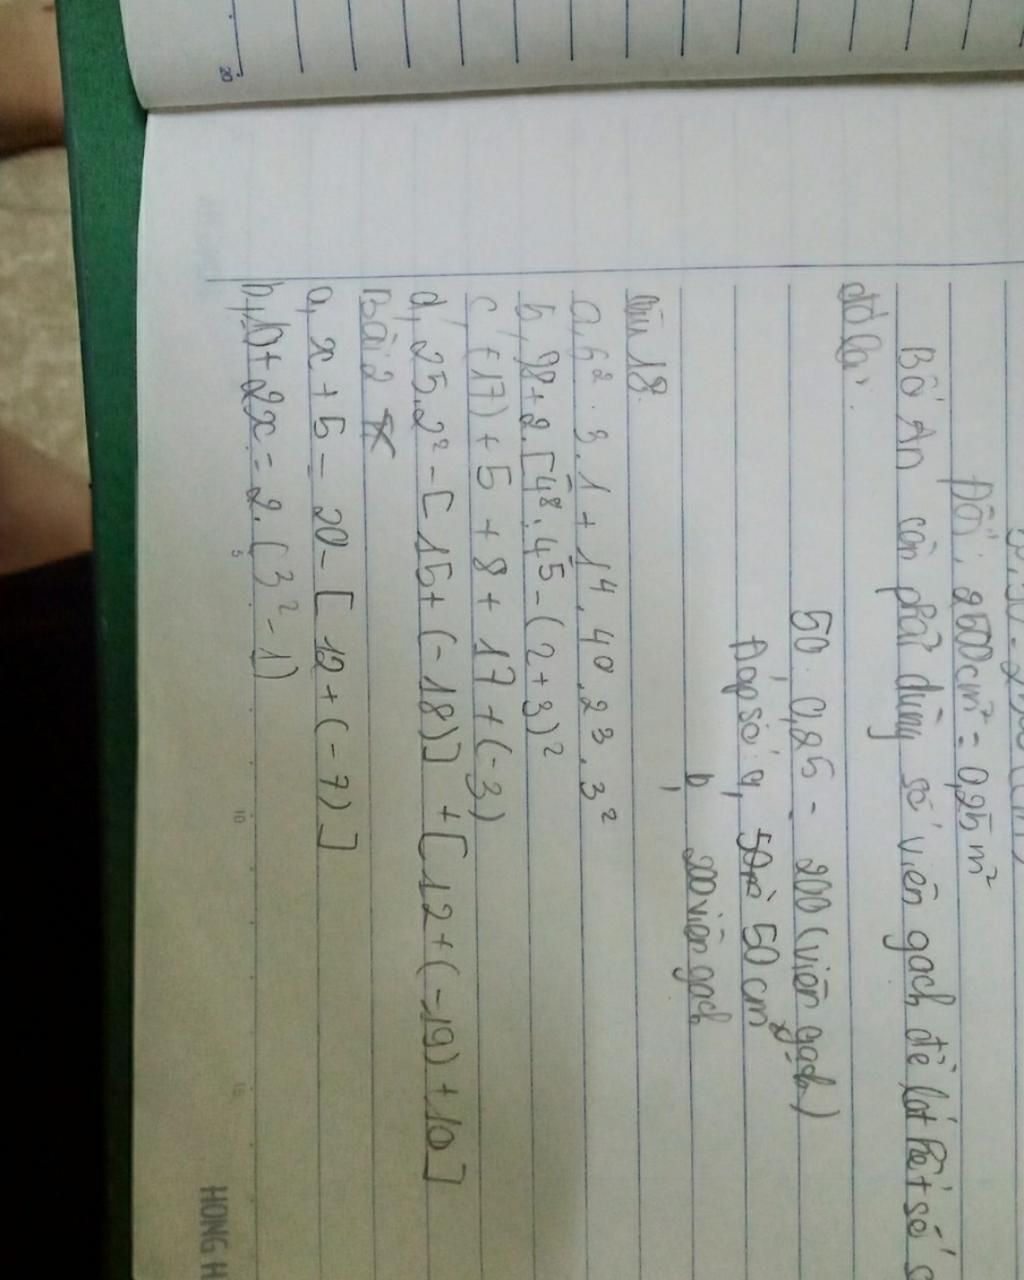 Đổi: 2500cm² = 0,25m²
Bố An cần phải dùng số viên gạch để lát hết số
đó là:
50 : 0,25 = 200 (viên gạch)
Đáp số: a, 50 cm
b, 200 viên gạch
18.
a, 6² : 3 . 1 + 1⁴ . 40 . 2³ . 3²
b, 98 + 2 . [4⁸ : 4⁵ - (2 + 3)²
c, (+17) + 5 + 8 + 17 + (-3)
d, 25 . 2² - [15 + (-18)] + [12 + (-19) + 10]
Bài 2
a, x + 5 = 20 - [12 + (-7)]
b, 10 + 2x = 2 . (3² - 1)
5
10
15
20
HONG H